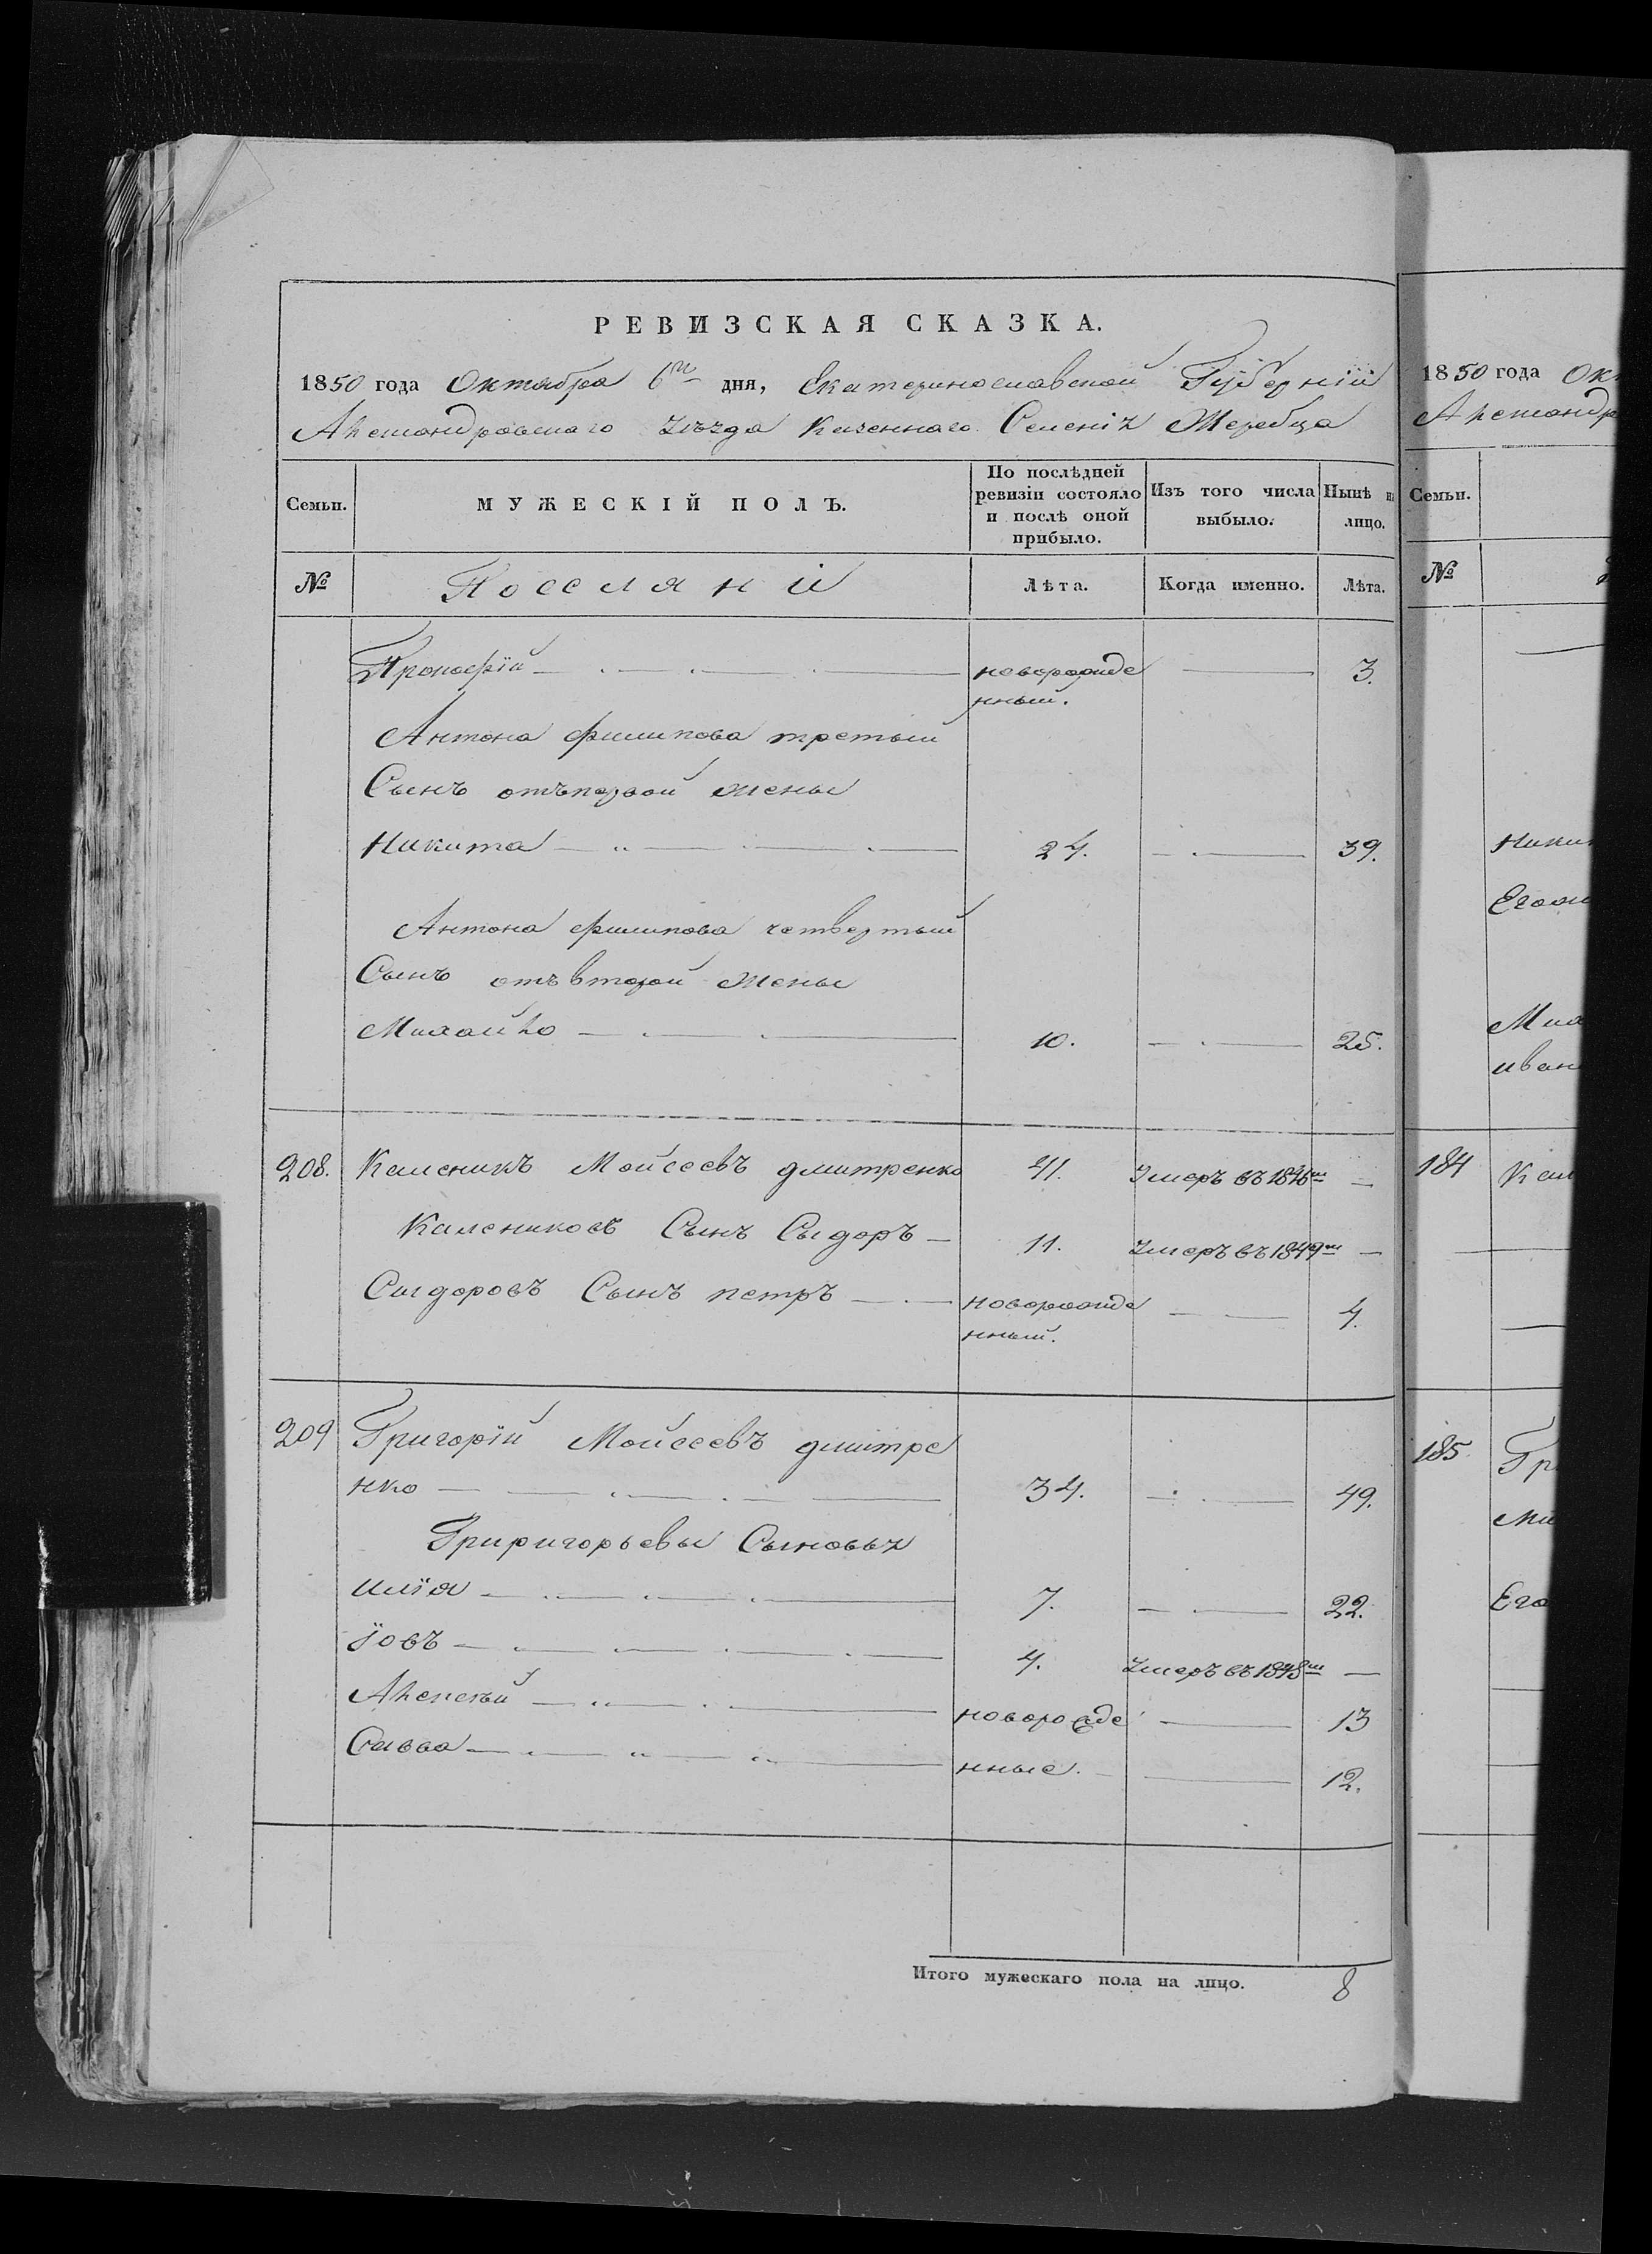 РЕВИЗСКАЯ СКАЗКА.
1850 года Октября 6го дня, Екатеринославской Губерніи
Александровскаго Уѣзда Казеннаго Селенія Жеребца
Семьи.
МУЖЕСКІЙ ПОЛЪ.
По послѣдней ревизіи состояло и послѣ оной прибыло.
Изъ того числа выбыло.
Нынѣ на лицо.
№
Поселяне
Лѣта.
Когда именно.
Лѣта.
Прокофій новорожде 3.
нный.
Антона Филипова третьій
Сынъ отъ первой жены
Никита 24. 39.
Антона Филипова четвертый
Сынъ отъ второй жены
Михайло 10. 25.
208. Каленикъ Мойсеевъ Дмитренко 41. Умеръ въ 1846м —
Калениковъ Сынъ Сыдоръ 11. Умеръ въ 1849м —
Сыдоровъ Сынъ петръ новорожде 4.
нный.
209 Григорій Мойсеевъ дмитре
нко 34. 49.
Григригорьевы Сыновья
илія 7. 22.
іовъ 4. Умеръ въ 1848м —
Алексѣй новорожде 13
Савва нные. 12.
Итого мужескаго пола на лицо. 8
1850 года Ок
Александр
Семьи.
№
Ники
Его
Мих
иван
184 Кал
185. Гр
Его